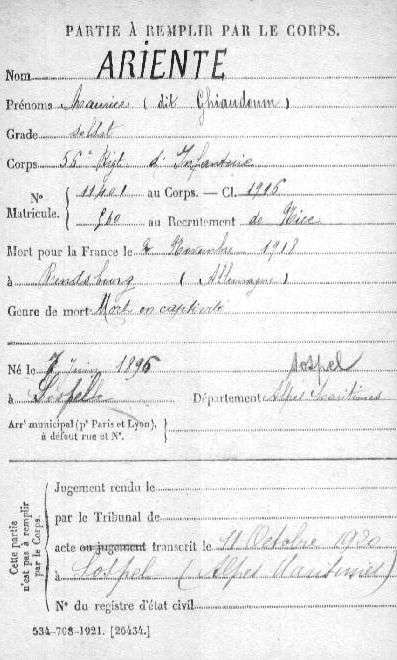 PARTIE À REMPLIR PAR LE CORPS.
Nom ARIENTE
Prénoms Maurice (dit Ghiaudoum)
Grade soldat
Corps 56e Régt d'Infanterie
N° Matricule. { 11401 au Corps. — Cl. 1916
960 au Recrutement de Nice
Mort pour la France le 2 Novembre 1918
à Rendsburg (Allemagne)
Genre de mort Mort en captivité
Né le 7 Juin 1896 Sospel
à Sospello Département Alpes Maritimes
Arrt municipal (pr Paris et Lyon), à défaut rue et N°. }
Cette partie n'est pas à remplir par le Corps. {
Jugement rendu le
par le Tribunal de
acte ou jugement transcrit le 11 Octobre 1920
à Sospel (Alpes Maritimes)
N° du registre d'état civil
534-708-1921. [26434.]